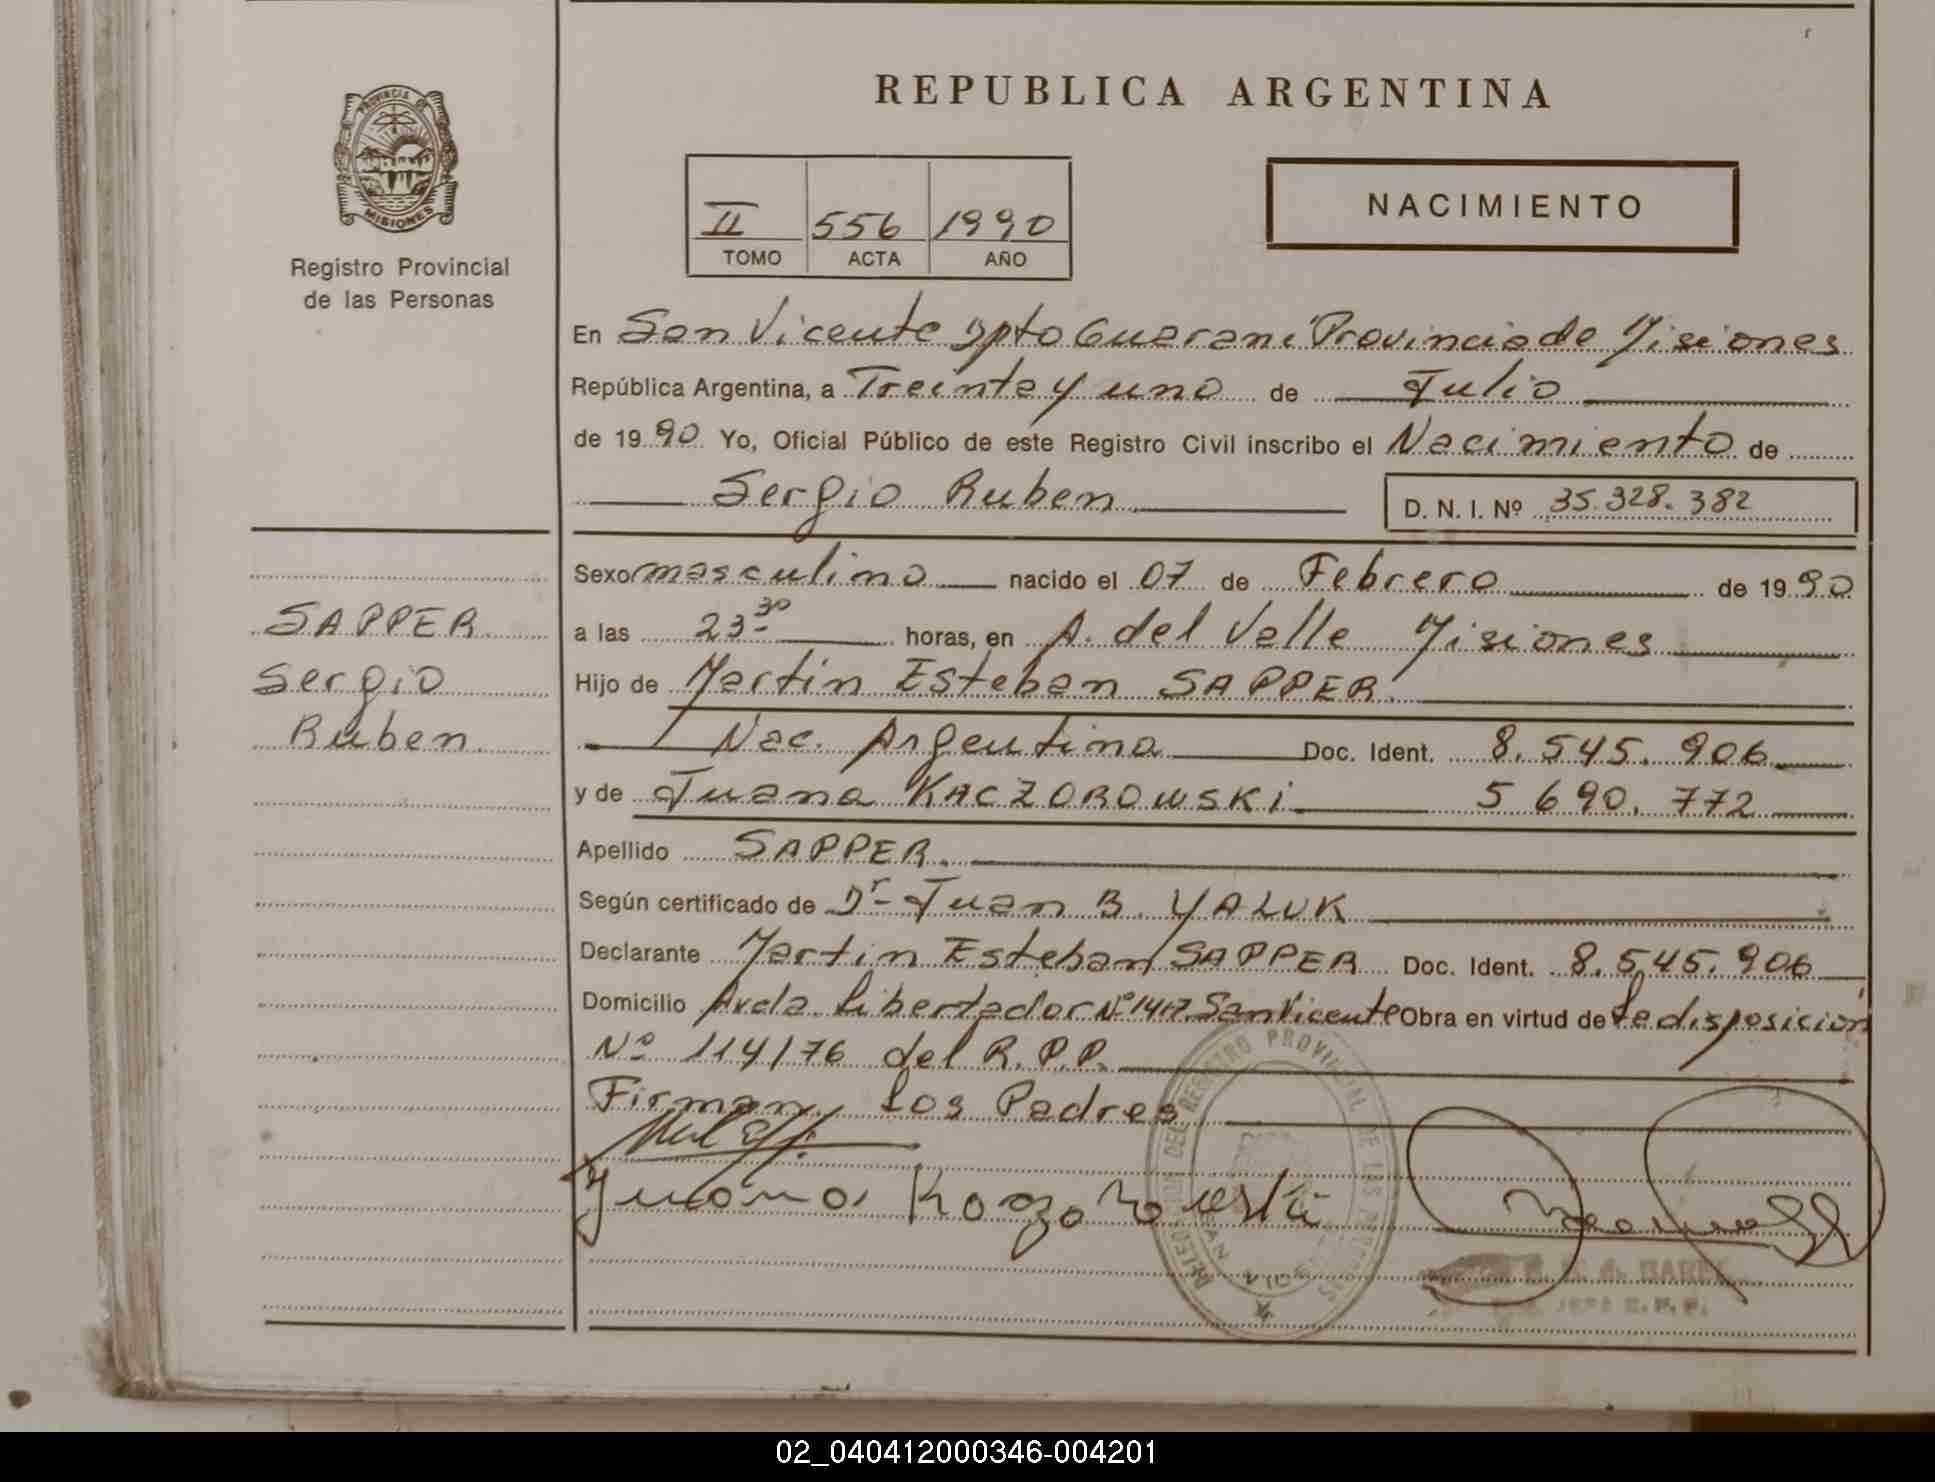 PROVINCIA DE
MISIONES
Registro Provincial
de las Personas
REPUBLICA ARGENTINA
II 556 1990
TOMO ACTA AÑO
NACIMIENTO
En San Vicente Dpto Guarani Provincia de Misiones
República Argentina, a Treinta y uno de Julio
de 1990 Yo, Oficial Público de este Registro Civil inscribo el Nacimiento de
Sergio Ruben D. N. I. Nº 35.328.382
SAPPER
Sergio
Ruben
Sexo masculino nacido el 07 de Febrero de 1990
a las 23 30 horas, en A. del Valle Misiones
Hijo de Martin Esteban SAPPER.
Nac. Argentina Doc. Ident. 8.545.906
y de Juana KACZOROWSKi 5 690.772
Apellido SAPPER.
Según certificado de Dr Juan B. YALUK
Declarante Martin Esteban SAPPER Doc. Ident. 8.545.906
Domicilio Avda. Libertador Nº 1417 San Vicente Obra en virtud de la disposición
Nº 114/76 del R.P.P.
Firman los Padres
Juana
DEL REGISTRO PROVINCIAL DE LAS PERSONAS
02_040412000346-004201